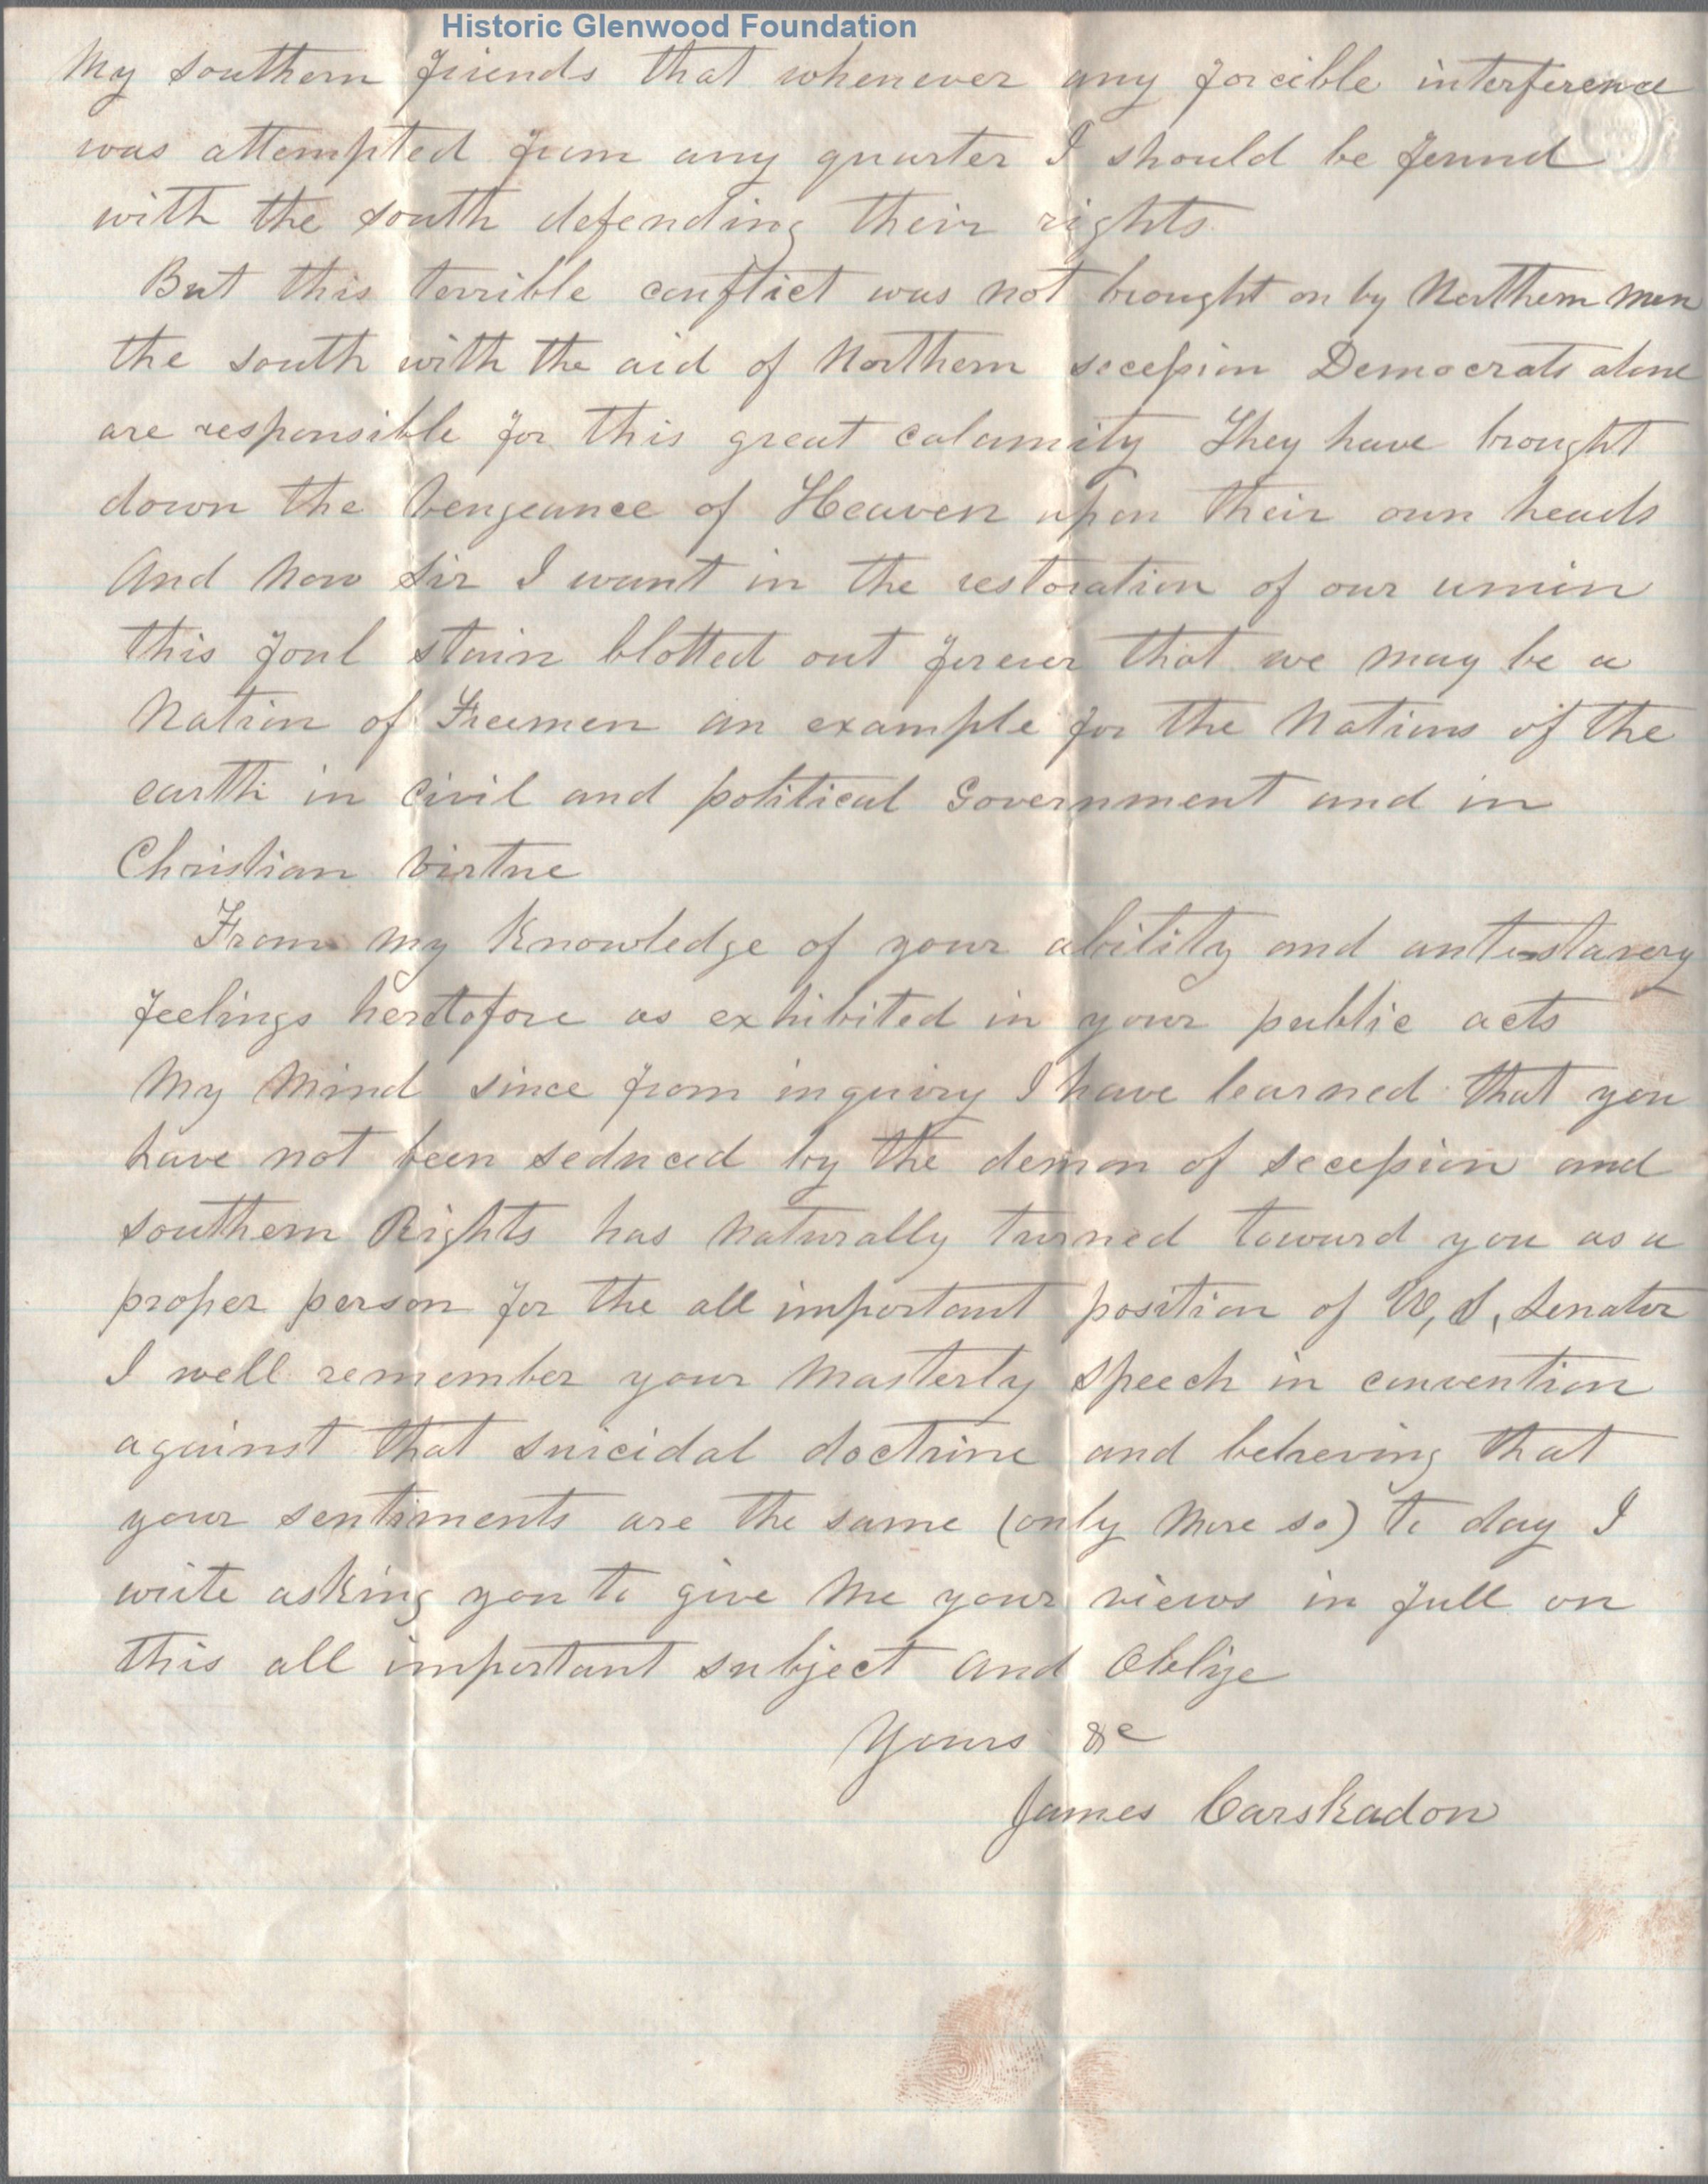 Historic Glenwood Foundation
My southern friends that whenever any forcible interference
was attempted from any quarter I should be found
with the south defending their rights
But this terrible conflict was not brought on by Northern men
the south with the aid of Northern secession Democrats alone
are responsible for this great calamity They have brought
down the Vengeance of Heaven upon their own heads
And now Sir I want in the restoration of our union
this foul stain blotted out forever that we may be a
Nation of Freemen an example for the Nations of the
earth in civil and political Government and in
Christian Virtue
From my Knowledge of your ability and anti-slavery
feelings heretofore as exhibited in your public acts
My Mind since from inquiry I have learned that you
have not been seduced by the demon of secession and
southern Rights has naturally turned toward you as a
proper person for the all important position of U, S, Senator
I well remember your Masterly speech in convention
against that suicidal doctrine and believing that
your sentiments are the same (only More so) to day I
write asking you to give Me your views in full on
this all important subject and Oblige
Yours &c
James Carskadon